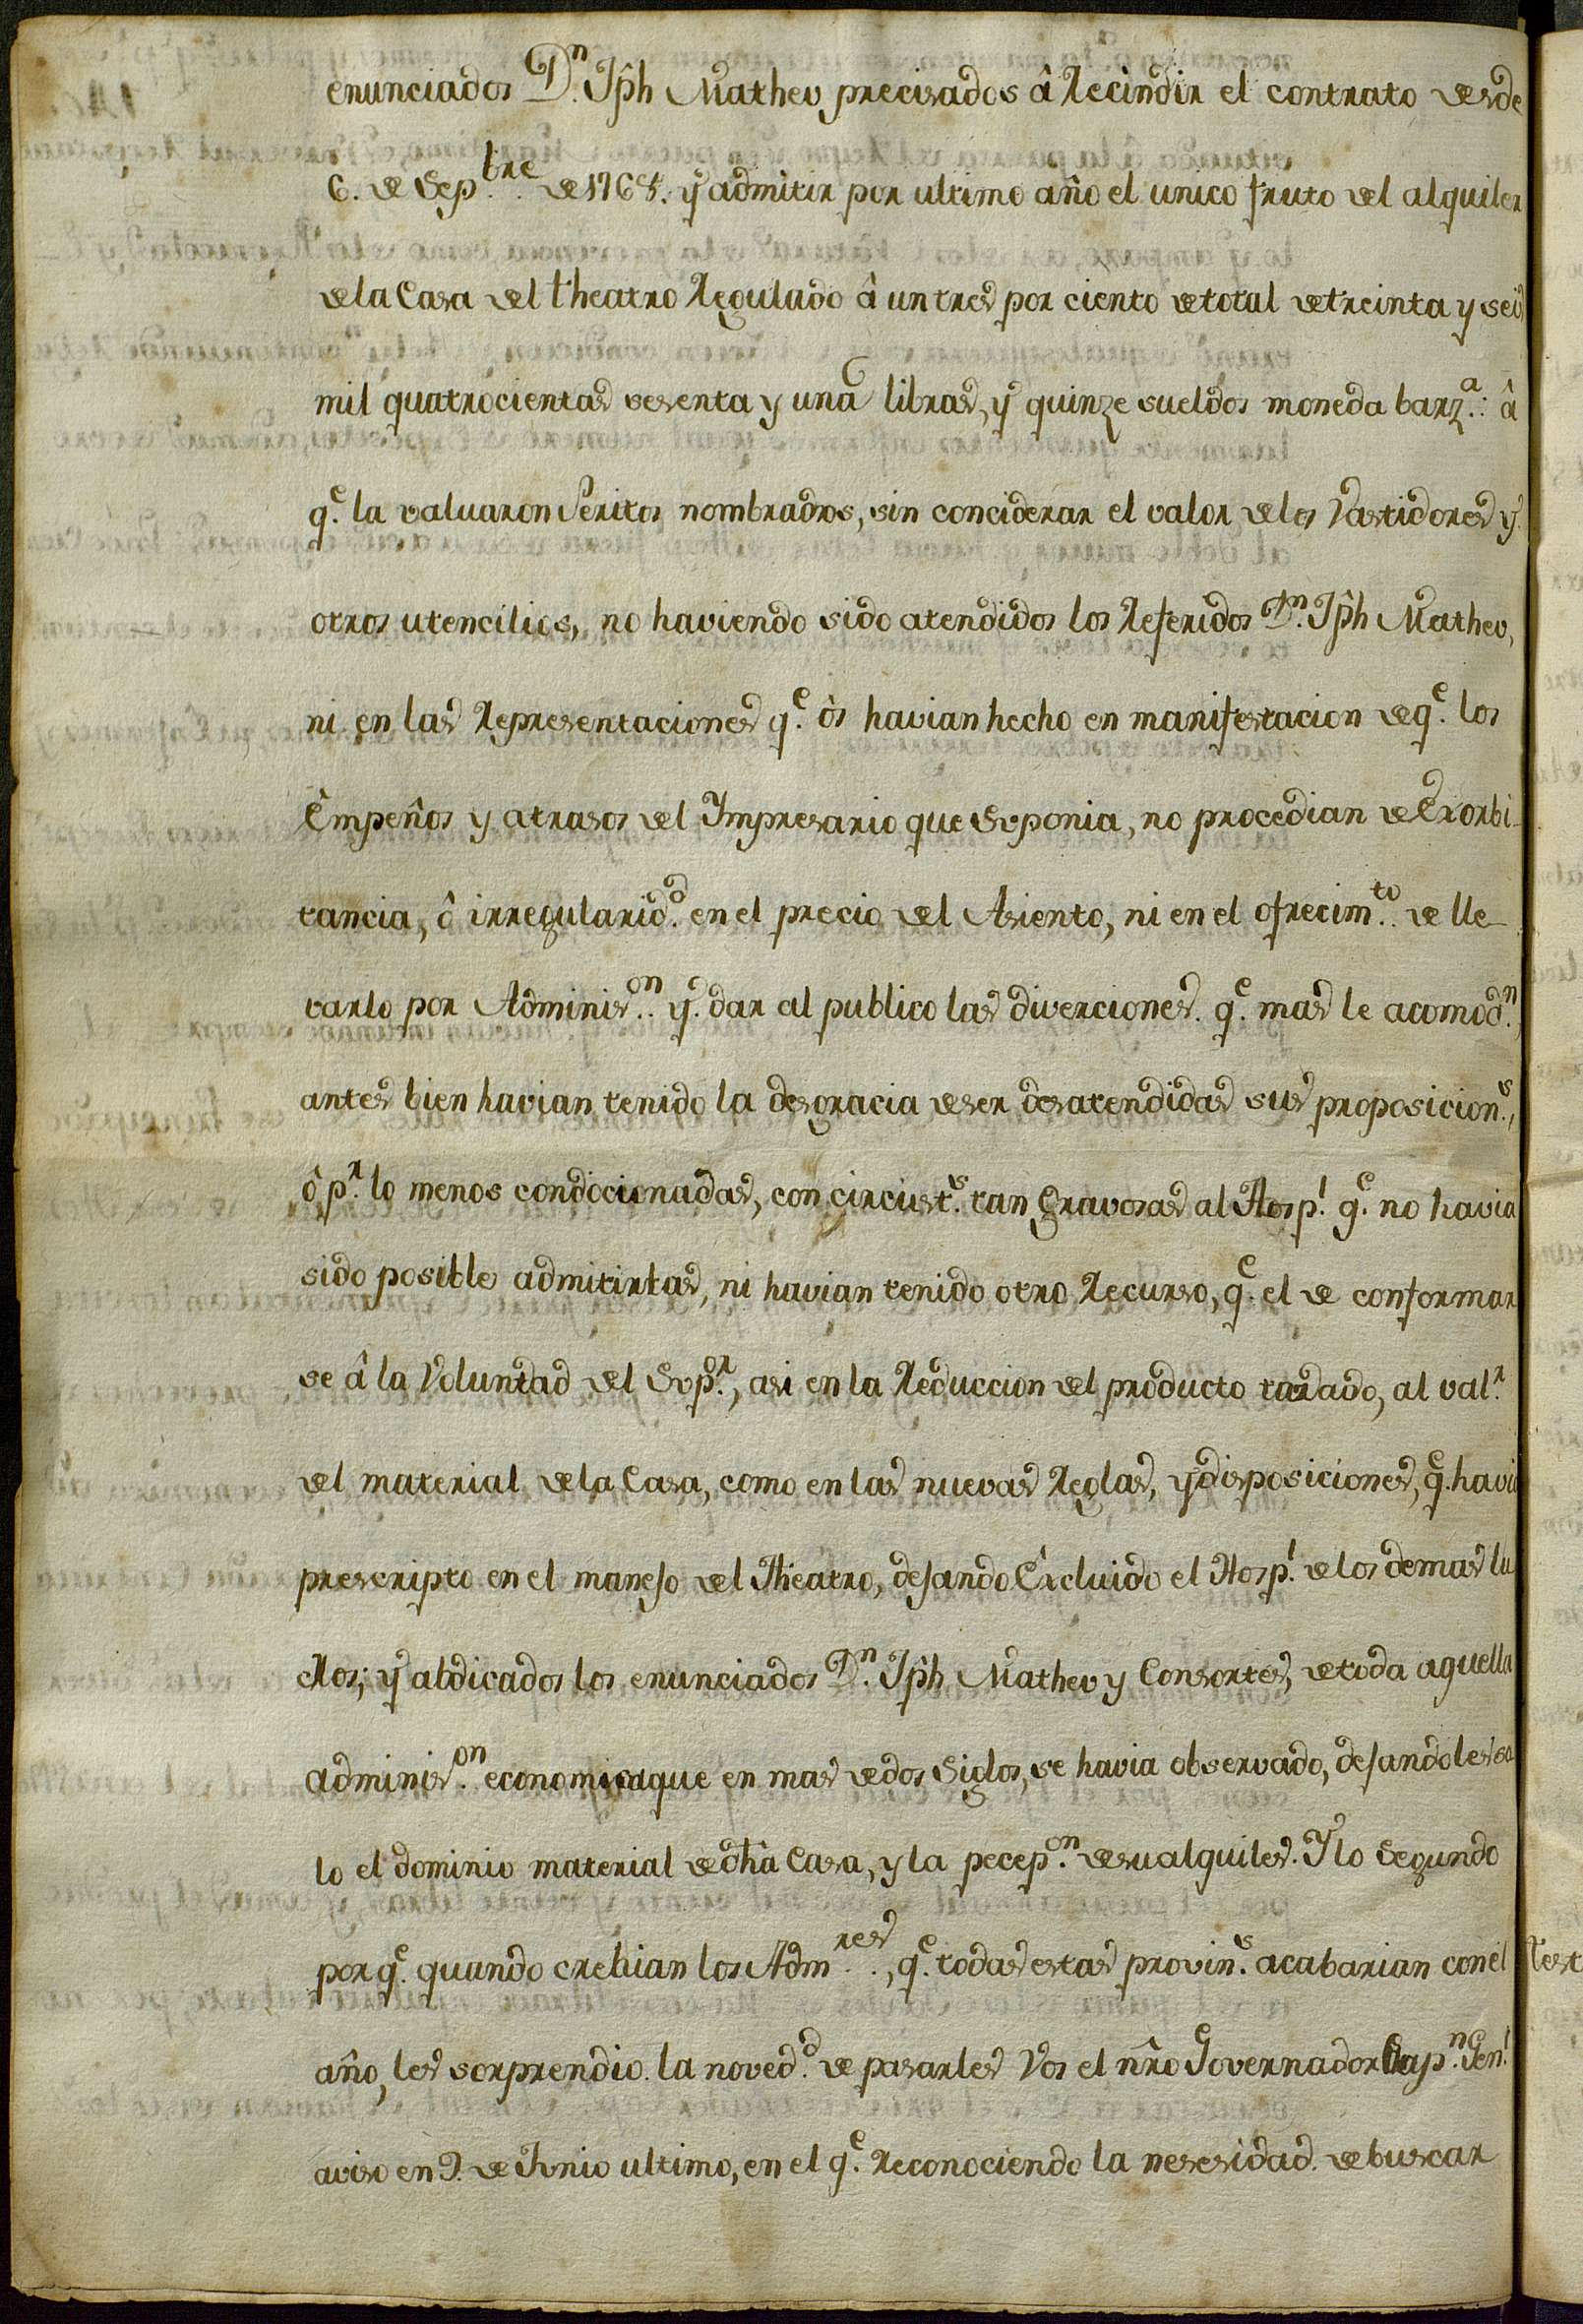 enunciados Dn. Jph Matheu precisados â Recindir el contrato desde
6. de Sepbre. de 1768. y admitir por ultimo año el unico fruto del alquiler
de la Casa del theatro Regulado â un tres por ciento de total de treinta y seis
mil quatrocientas sesenta y una libras, y quinze sueldos moneda barza.: â
qe. la valuaron Peritos nombrados, sin conciderar el valor de los Vastidores y
otros utencilios, no haviendo sido atendidos los Referidos Dn. Jph Matheu,
ni en las Representaciones qe. òs havian hecho en manifestacion de qe. los
Empeños y atrasos del Impresario que Suponia, no procedian de Exorbi-
tancia, ô irregularidd. en el precio del Asiento, ni en el ofrecimto. de lle-
varlo por Administon. y dar al publico las diverciones. qe. mas le acomodn.,
antes bien havian tenido la desgracia de ser desatendidas sus proposicions.,
ô pr. lo menos condocionadas, con circusts. tan Gravosas al Hospl. qe. no havia
sido posible admitirlas, ni havian tenido otro Recurso, qe. el de conformar
se â la Voluntad del Supor., asi en la Reduccion del producto tazado, al valr.
del material de la Casa, como en las nuevas Reglas, y disposiciones, qe. havia
prescripto en el manejo del Theatro, dejando Excluido el Hospl. de los demas lu
cros; y abdicados los enunciados Dn. Jph Matheu y Consortes, de toda aquella
administon. economica que en mas de dos Siglos, se havia observado, dejandoles so
lo el dominio material de dha Casa, y la pecepon. de su alquiles. Y lo Segundo
por qe. quando crehian los Admres., qe. todas estas provins. acabarian con el
año, les sorprendio. la novedd. de pasarles Vos el nro Governador Capn. Genl.
aviso en 9. de Junio ultimo, en el qe. Reconociendo la nesesidad. de buscar